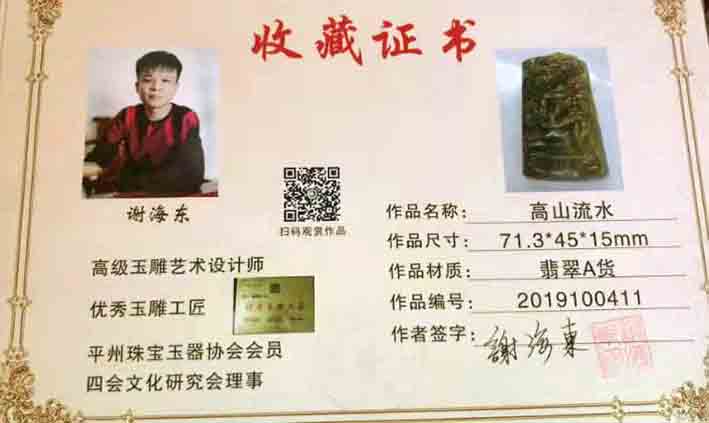 收藏证书
谢海东
扫码观赏作品
高级玉雕艺术设计师
优秀玉雕工匠
平州珠宝玉器协会会员
四会文化研究会理事
作品名称：高山流水
作品尺寸：71.3*45*15mm
作品材质：翡翠A货
作品编号：2019100411
作者签字：謝海東